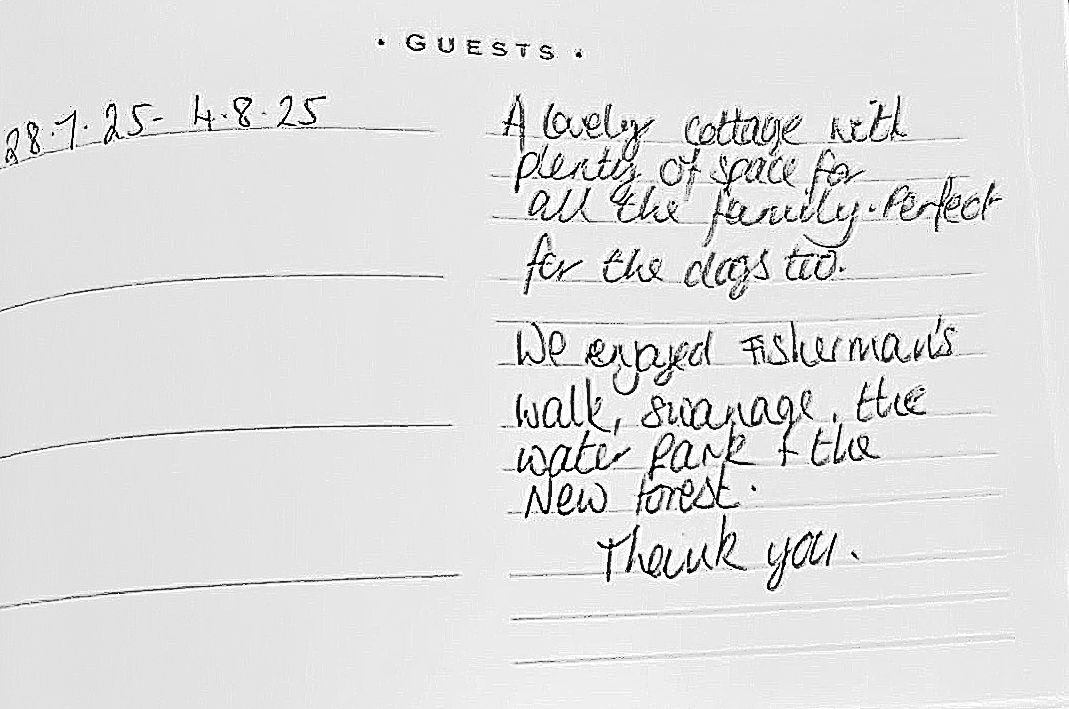 · GUESTS ·
28.7.25- 4.8.25
A lovely cottage with
plenty of space for
all the family. Perfect
for the dogs too.
We enjoyed Fisherman's
walk, swanage, the
water park + the
New forest.
Thank you.